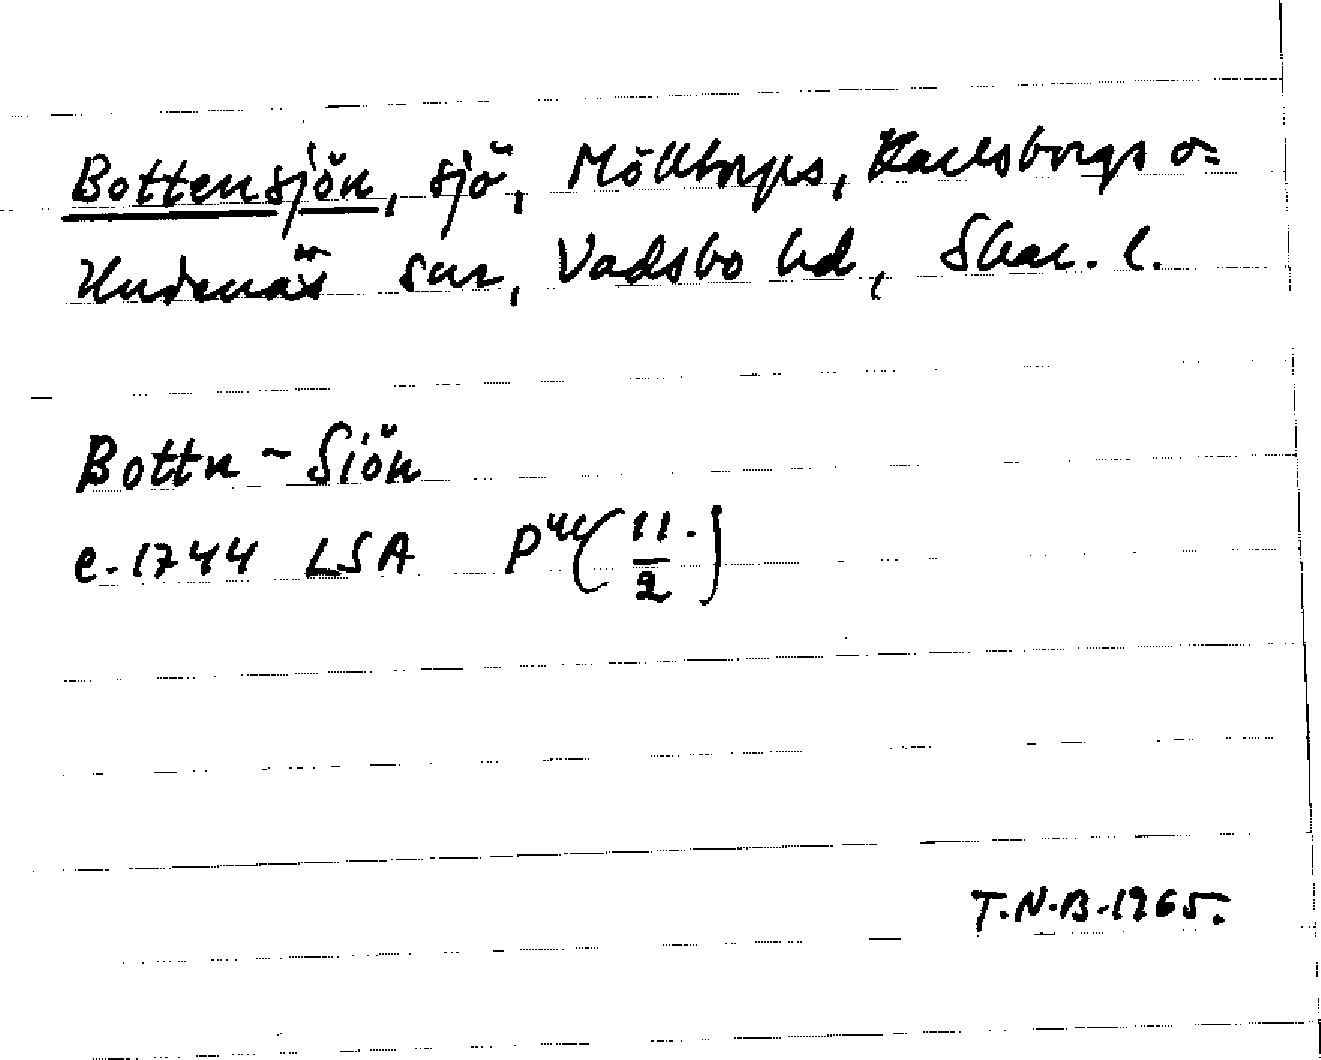 Bottensjön, sjö, Mölltorps, Karlsborgs o.
Undenäs snr, Vadsbo hd, Skar. l.
Bottn-Siön
c. 1744 LSA P (11./2)
T.N.B. 1965.